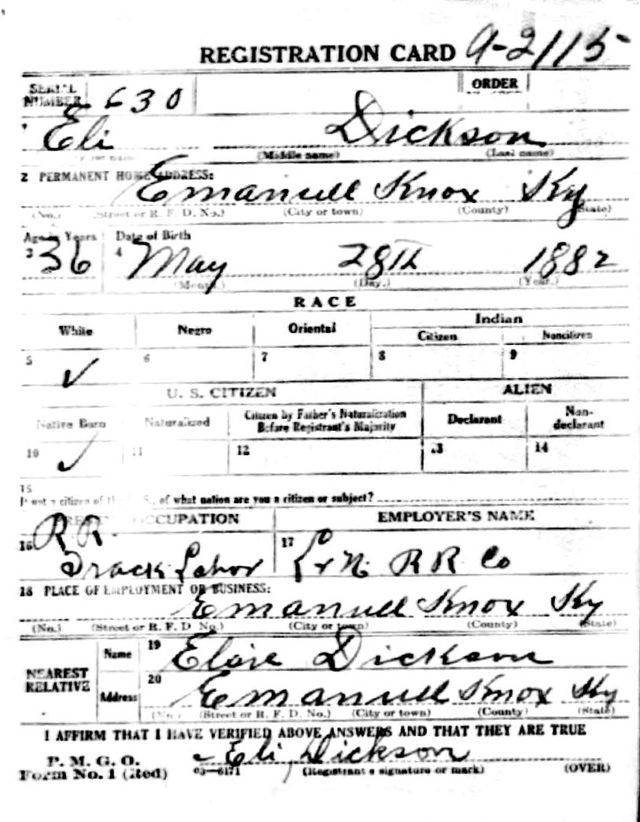 REGISTRATION CARD A-2115
SERIAL NUMBER 630 ORDER
1 Eli Dickson
(Middle name) (Last name)
2 PERMANENT HOME ADDRESS: Emanuell Knox Ky
(No.) (Street or R. F. D. No.) (City or town) (County) (State)
Age in Years Date of Birth
3 36 4 May 28th 1882
(Month.) (Day.) (Year.)
RACE
White Negro Oriental Indian
Citizen Noncitizen
5 ✓ 6 7 8 9
U. S. CITIZEN ALIEN
Native Born Naturalized Citizen by Father's Naturalization Before Registrant's Majority Declarant Non-declarant
10 ✓ 11 12 13 14
15
If not a citizen of the U. S., of what nation are you a citizen or subject?
PRESENT OCCUPATION EMPLOYER'S NAME
16 R.R. Track Labor 17 L & N. R R Co
18 PLACE OF EMPLOYMENT OR BUSINESS:
Emanuell Knox Ky
(No.) (Street or R. F. D. No.) (City or town) (County) (State)
NEAREST RELATIVE
Name 19 Dickson
Address 20 Emanuell Knox Ky
(No.) (Street or R. F. D. No.) (City or town) (County) (State)
I AFFIRM THAT I HAVE VERIFIED ABOVE ANSWERS AND THAT THEY ARE TRUE
P. M. G. O.
Form No. 1 (Red) 03—6171 Eli Dickson
(Registrant's signature or mark) (OVER)